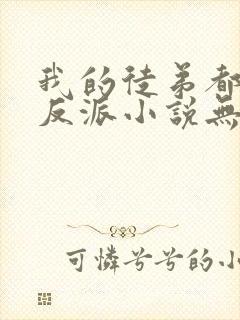 我的徒弟都
反派小說無
可憐兮兮的小